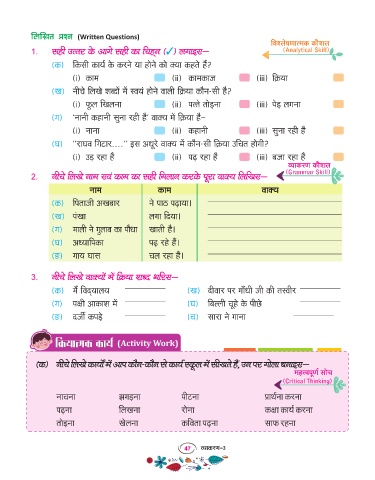 लिखित प्रश्न (Written Questions)
विश्लेषणात्मक कौशल
(Analytical Skill)
1. सही उत्तर के आगे सही का चिह्न (✓) लगाइए—
(क) किसी कार्य के करने या होने को क्या कहते हैं?
(i) काम (ii) कामकाज (iii) क्रिया
(ख) नीचे लिखे शब्दों में स्वयं होने वाली क्रिया कौन-सी है?
(i) फूल खिलना (ii) पत्ते तोड़ना (iii) पेड़ लगना
(ग) 'नानी कहानी सुना रही हैं' वाक्य में क्रिया है-
(i) नाना (ii) कहानी (iii) सुना रही हैं
(घ) "राघव गिटार....." इस अधूरे वाक्य में कौन-सी क्रिया उचित होगी?
(i) उड़ रहा है (ii) पढ़ रहा है (iii) बजा रहा है
व्याकरण कौशल
(Grammar Skill)
2. नीचे लिखे नाम एवं काम का सही मिलान करके पूरा वाक्य लिखिए—
नाम काम वाक्य
(क) पिताजी अखबार ने पाठ पढ़ाया।
(ख) पंखा लगा दिया।
(ग) माली ने गुलाब का पौधा खाती है।
(घ) अध्यापिका पढ़ रहे हैं।
(ङ) गाय घास चल रहा है।
3. नीचे लिखे वाक्यों में क्रिया शब्द भरिए—
(क) मैं विद्यालय (ख) दीवार पर गाँधी जी की तस्वीर
(ग) पक्षी आकाश में (घ) बिल्ली चूहे के पीछे
(ङ) दर्जी कपड़े (च) सारा ने गाना
क्रियात्मक कार्य (Activity Work)
(क) नीचे लिखे कार्यों में आप कौन-कौन से कार्य स्कूल में सीखते हैं, उन पर गोला बनाइए—
महत्त्वपूर्ण सोच
(Critical Thinking)
नाचना झगड़ना पीटना प्रार्थना करना
पढ़ना लिखना रोना कक्षा कार्य करना
तोड़ना खेलना कविता पढ़ना साफ रहना
47 व्याकरण-3